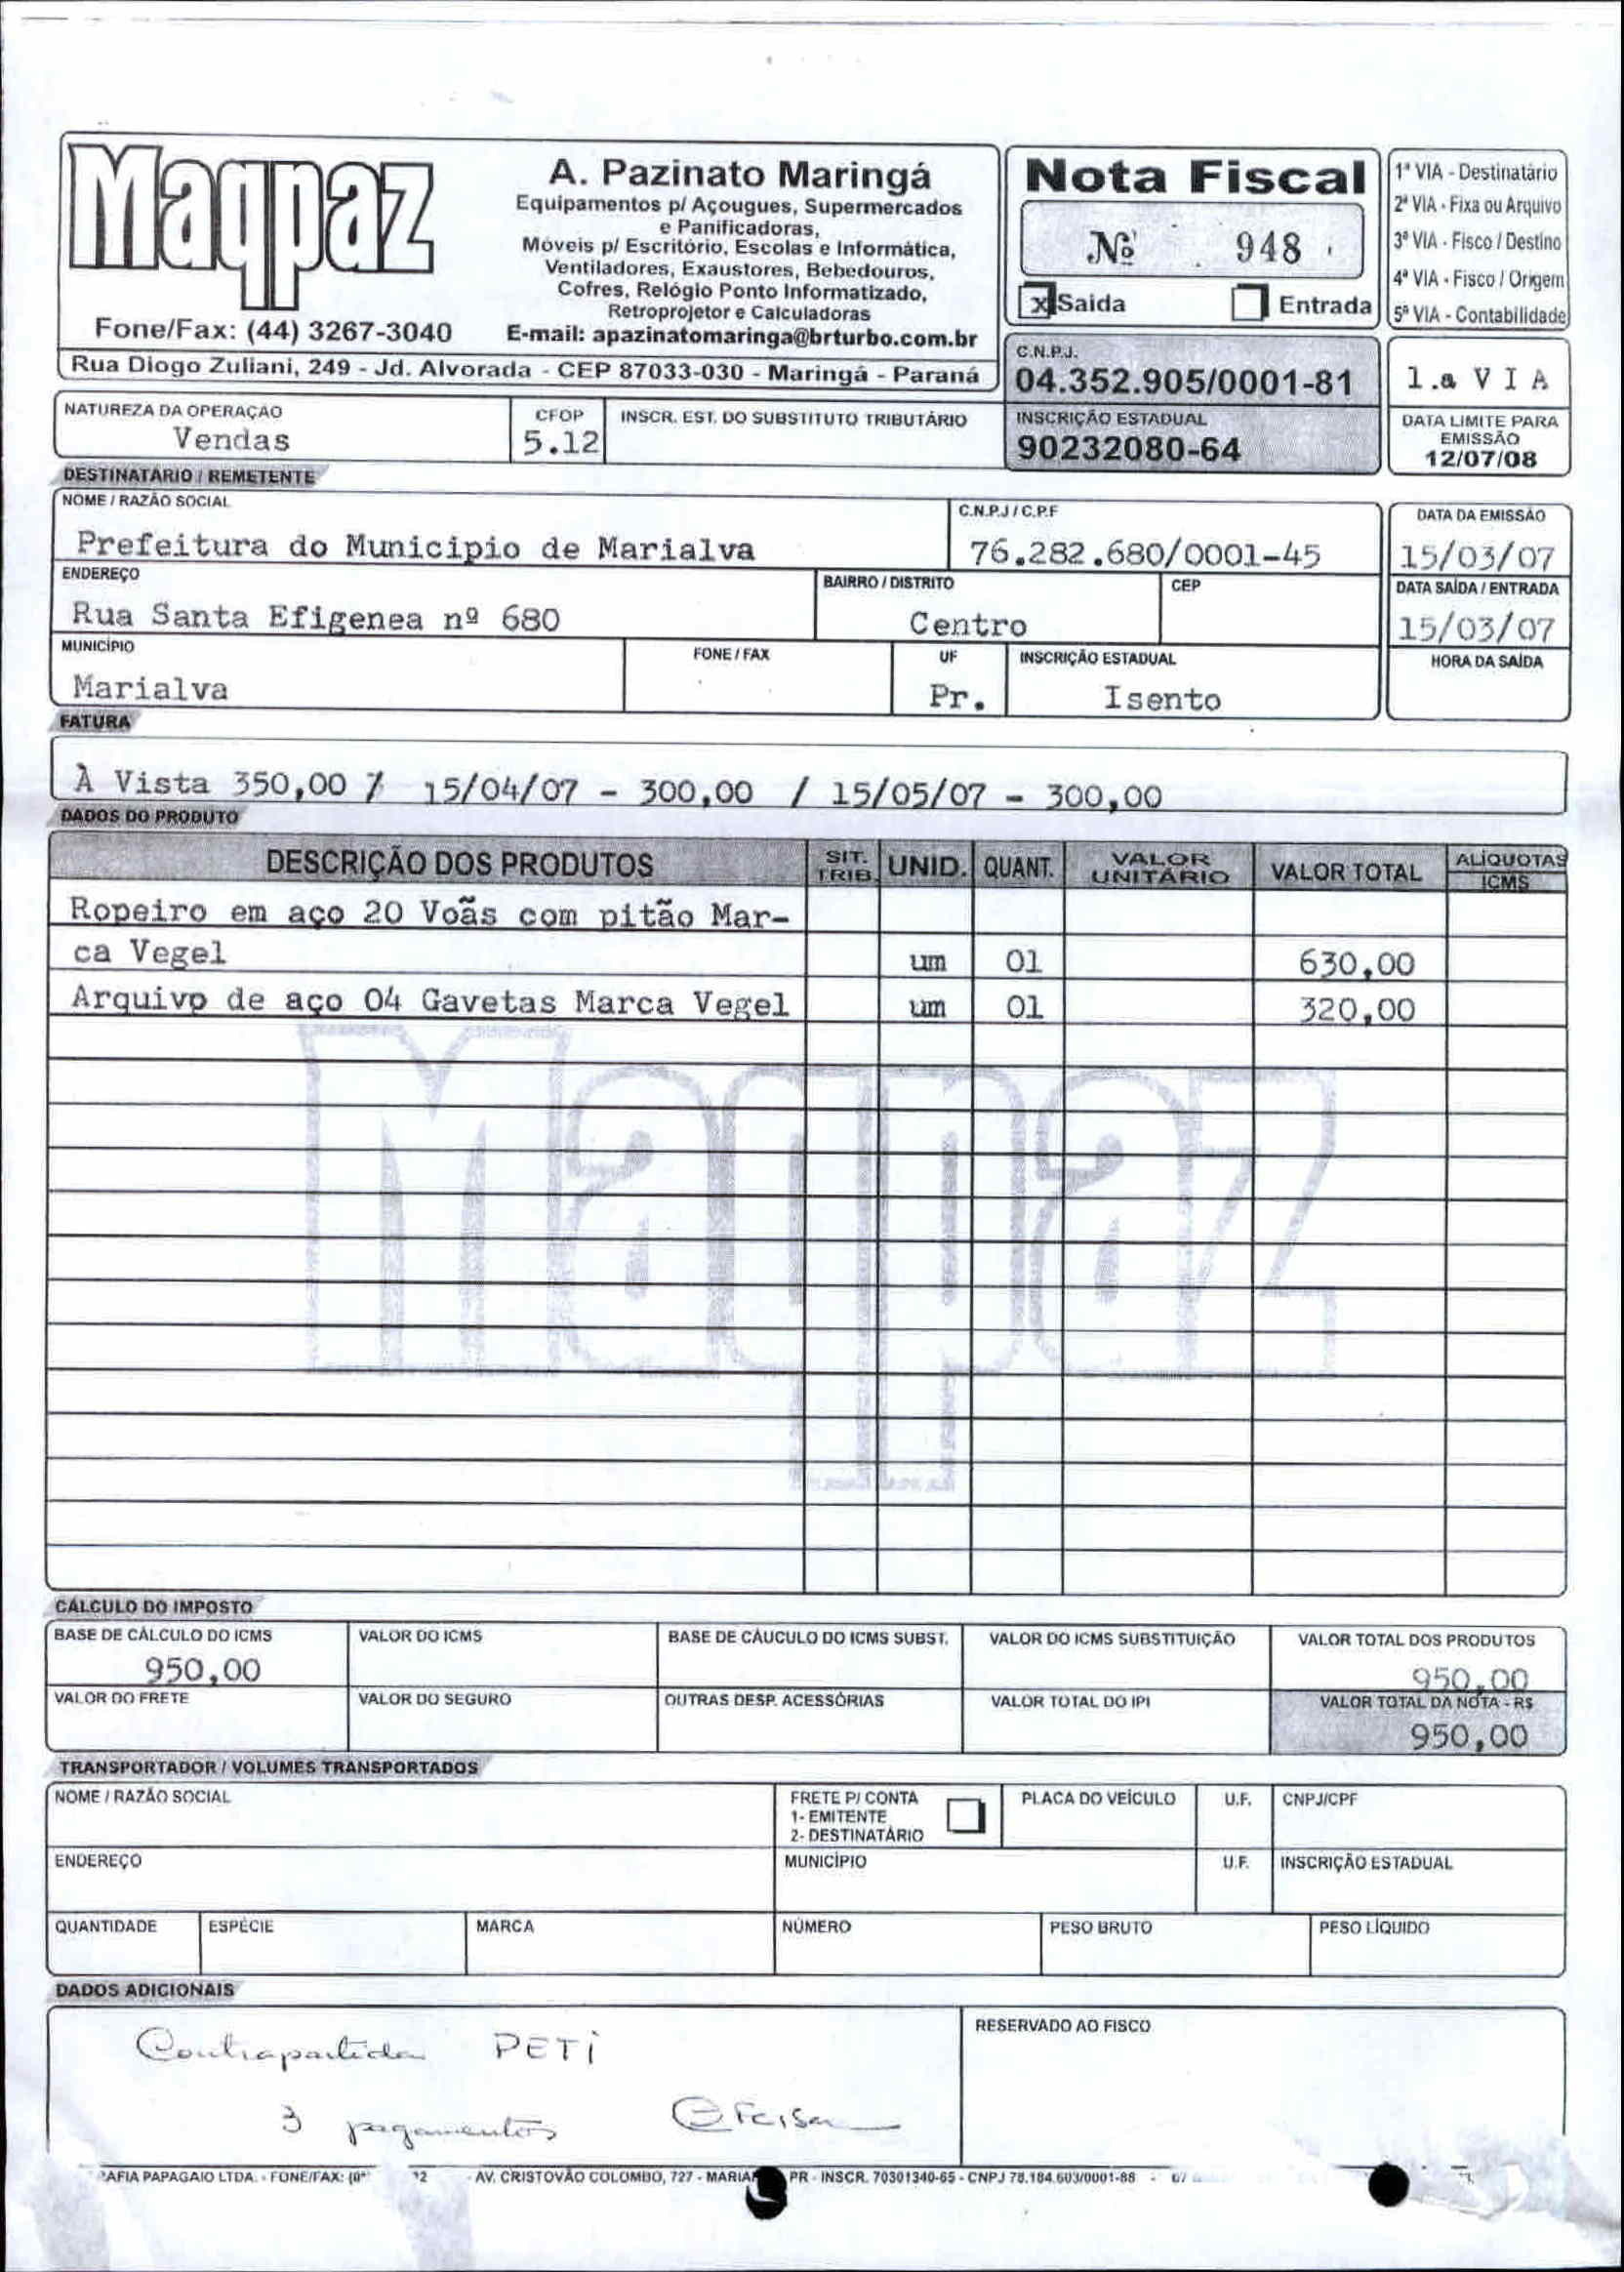 Maqpaz
Fone/Fax: (44) 3267-3040
A. Pazinato Maringá
Equipamentos p/ Açougues, Supermercados
e Panificadoras,
Móveis p/ Escritório, Escolas e Informática,
Ventiladores, Exaustores, Bebedouros,
Cofres, Relógio Ponto Informatizado,
Retroprojetor e Calculadoras
E-mail: apazinatomaringa@brturbo.com.br
Rua Diogo Zuliani, 249 - Jd. Alvorada - CEP 87033-030 - Maringá - Paraná
Nota Fiscal
Nº 948
X Saida Entrada
1ª VIA - Destinatário
2ª VIA - Fixa ou Arquivo
3ª VIA - Fisco / Destino
4ª VIA - Fisco / Origem
5ª VIA - Contabilidade
C.N.P.J.
04.352.905/0001-81
1.a VIA
NATUREZA DA OPERAÇÃO
Vendas
CFOP
5.12
INSCR. EST. DO SUBSTITUTO TRIBUTÁRIO
INSCRIÇÃO ESTADUAL
90232080-64
DATA LIMITE PARA
EMISSÃO
12/07/08
DESTINATÁRIO / REMETENTE
NOME / RAZÃO SOCIAL
Prefeitura do Municipio de Marialva
C.N.P.J / C.P.F
76.282.680/0001-45
DATA DA EMISSÃO
15/03/07
ENDEREÇO
Rua Santa Efigenea nº 680
BAIRRO / DISTRITO
Centro
CEP
DATA SAÍDA / ENTRADA
15/03/07
MUNICÍPIO
Marialva
FONE / FAX
UF
Pr.
INSCRIÇÃO ESTADUAL
Isento
HORA DA SAÍDA
FATURA
À Vista 350,00 / 15/04/07 - 300,00 / 15/05/07 - 300,00
DADOS DO PRODUTO
DESCRIÇÃO DOS PRODUTOS SIT. TRIB. UNID. QUANT. VALOR UNITÁRIO VALOR TOTAL ALÍQUOTAS ICMS
Ropeiro em aço 20 Voãs com pitão Mar-
ca Vegel um 01 630,00
Arquivo de aço 04 Gavetas Marca Vegel um 01 320,00
Maqpaz
CÁLCULO DO IMPOSTO
BASE DE CÁLCULO DO ICMS VALOR DO ICMS BASE DE CÁUCULO DO ICMS SUBST. VALOR DO ICMS SUBSTITUIÇÃO VALOR TOTAL DOS PRODUTOS
950,00 950,00
VALOR DO FRETE VALOR DO SEGURO OUTRAS DESP. ACESSÓRIAS VALOR TOTAL DO IPI VALOR TOTAL DA NOTA - R$
950,00
TRANSPORTADOR / VOLUMES TRANSPORTADOS
NOME / RAZÃO SOCIAL
FRETE P/ CONTA
1- EMITENTE
2- DESTINATÁRIO
PLACA DO VEÍCULO U.F. CNPJ/CPF
ENDEREÇO MUNICÍPIO U.F. INSCRIÇÃO ESTADUAL
QUANTIDADE ESPÉCIE MARCA NÚMERO PESO BRUTO PESO LÍQUIDO
DADOS ADICIONAIS
RESERVADO AO FISCO
Contrapartida PETi
3 pagamentos
AFIA PAPAGAIO LTDA. - FONE/FAX: AV. CRISTOVÃO COLOMBO, 727 - PR - INSCR. 70301340-65 - CNPJ 78.184.603/0001-88